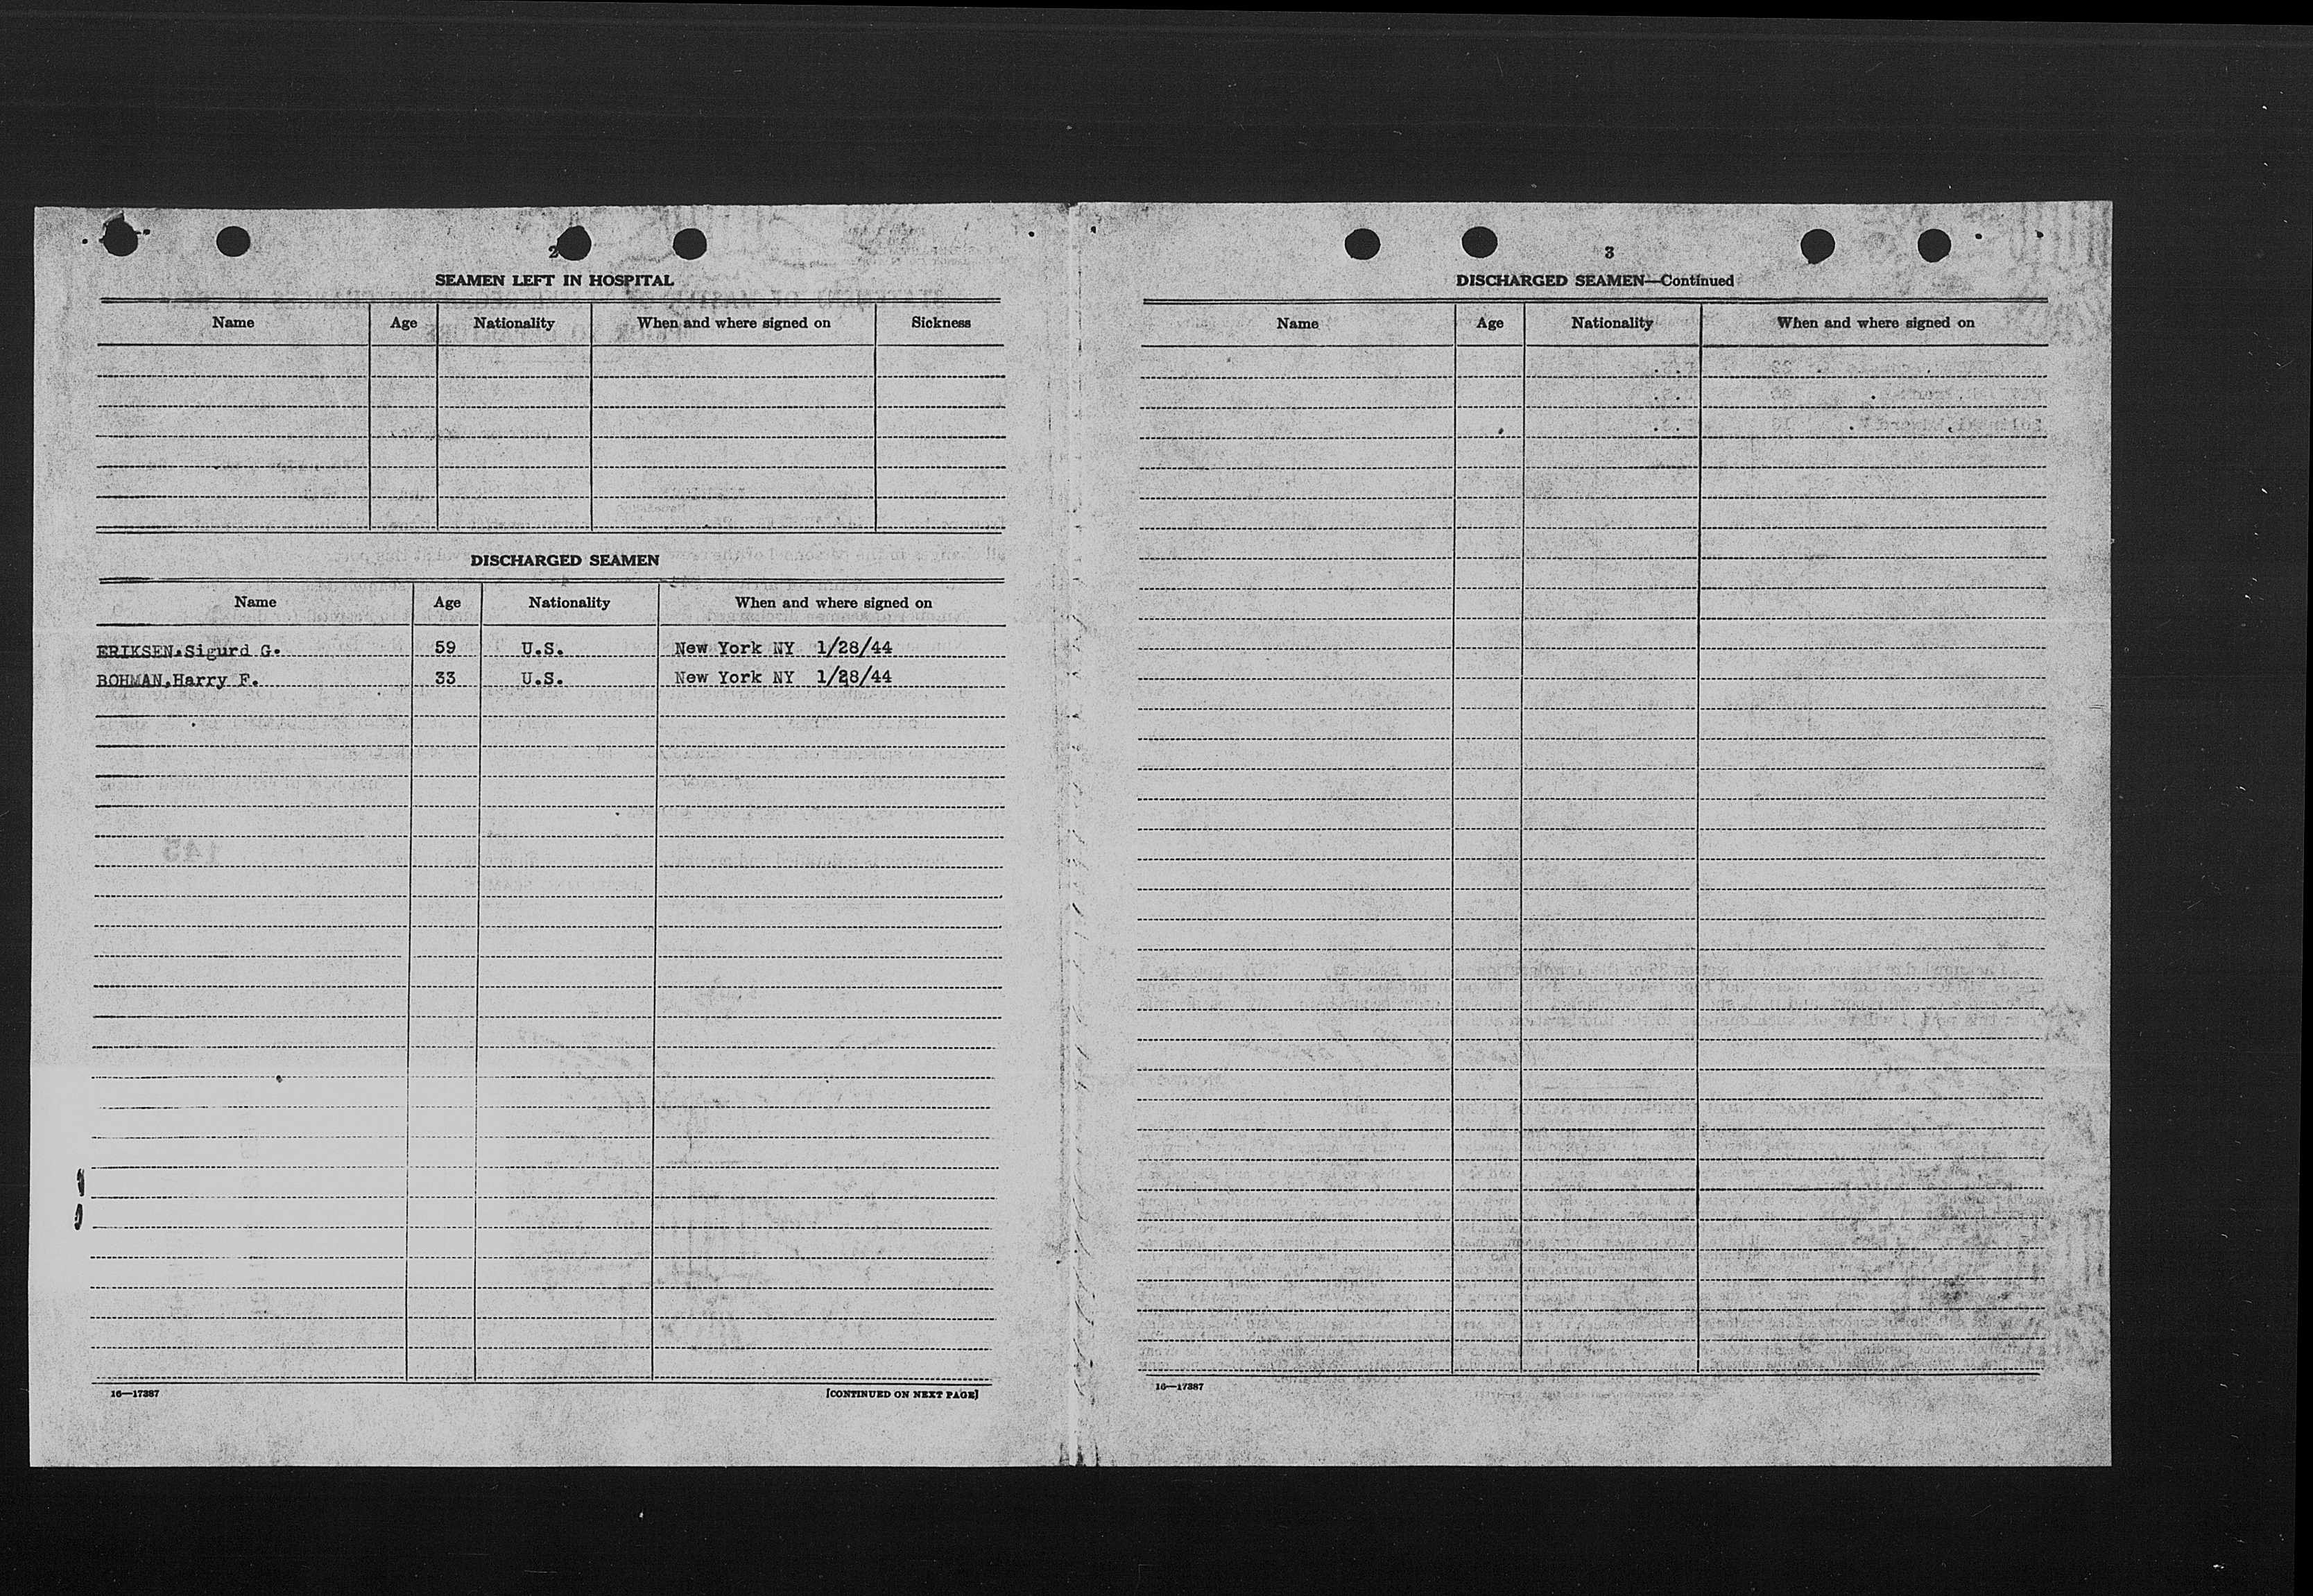 2
SEAMEN LEFT IN HOSPITAL
Name Age Nationality When and where signed on Sickness
DISCHARGED SEAMEN
Name Age Nationality When and where signed on
ERIKSEN.Sigurd G. 59 U.S. New York NY 1/28/44
BOHMAN,Harry F. 33 U.S. New York NY 1/28/44
16—17387 [CONTINUED ON NEXT PAGE]
3
DISCHARGED SEAMEN—Continued
Name Age Nationality When and where signed on
16—17387